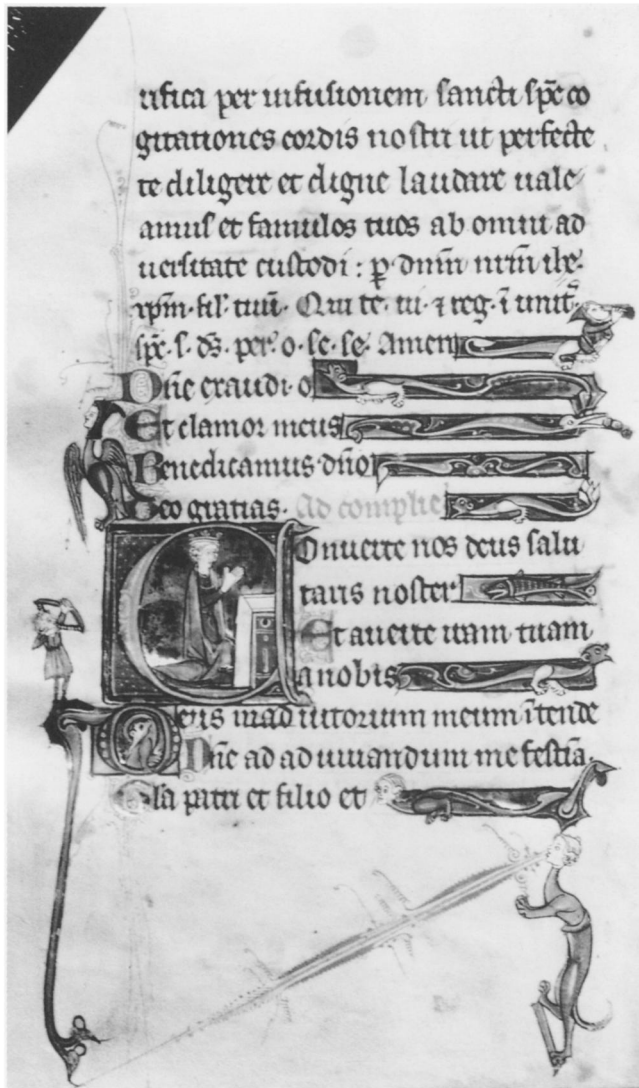 tifica per infusionem sancti spc co
gitationes cordis nostri ut perfecte
te diligere et digne laudare uale
amus et famulos tuos ab omni ad
uersitate custodi : p dnm nrm ihc
xpm · fil · tuu · Qui te · ui · ⁊ reg · i unit
spc · s · ds · per · o · se · se · Amen
Dne exaudi · o
Et clamor meus
Benedicamus · dno
Deo gratias · Ad complie
Conuerte nos deus salu
taris noster
Et auerte iram tuam
a nobis
Deus in ad iutorium meum itende
Dne ad ad iuuandum me festina
Gla patri et filio et